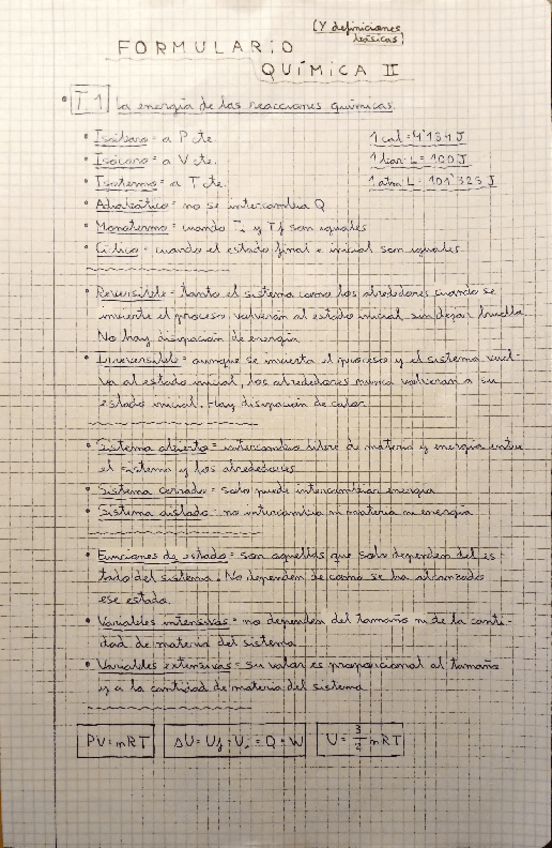 (Y definiciones
básicas)
FORMULARIO
QUÍMICA II
• T.1 La energía de las reacciones químicas.
• Isóbaro = a P cte.
1 cal = 4'184 J
• Isócoro = a V cte.
1 bar · L = 100 J
• Isotermo = a T cte.
1 atm · L = 101'325 J
• Adiabático = no se intercambia Q
• Monotermo = cuando Ti y Tf son iguales
• Cíclico = cuando el estado final e inicial son iguales
• Reversible = tanto el sistema como los alrededores cuando se
invierte el proceso volverán al estado inicial sin dejar huella.
No hay disipación de energía
• Irreversible = aunque se invierta el proceso y el sistema vuel-
va al estado inicial, los alrededores nunca volverán a su
estado inicial. Hay disipación de calor
• Sistema abierto = intercambio libre de materia y energía entre
el sistema y los alrededores
• Sistema cerrado = solo puede intercambiar energía
• Sistema aislado = no intercambia ni materia ni energía
• Funciones de estado = son aquellas que solo dependen del es-
tado del sistema. No dependen de como se ha alcanzado
ese estado.
• Variables intensivas = no dependen del tamaño ni de la canti-
dad de materia del sistema
• Variables extensivas = su valor es proporcional al tamaño
y a la cantidad de materia del sistema
PV = nRT
ΔU = Uf - Ui = Q + W
U = 3/2 nRT